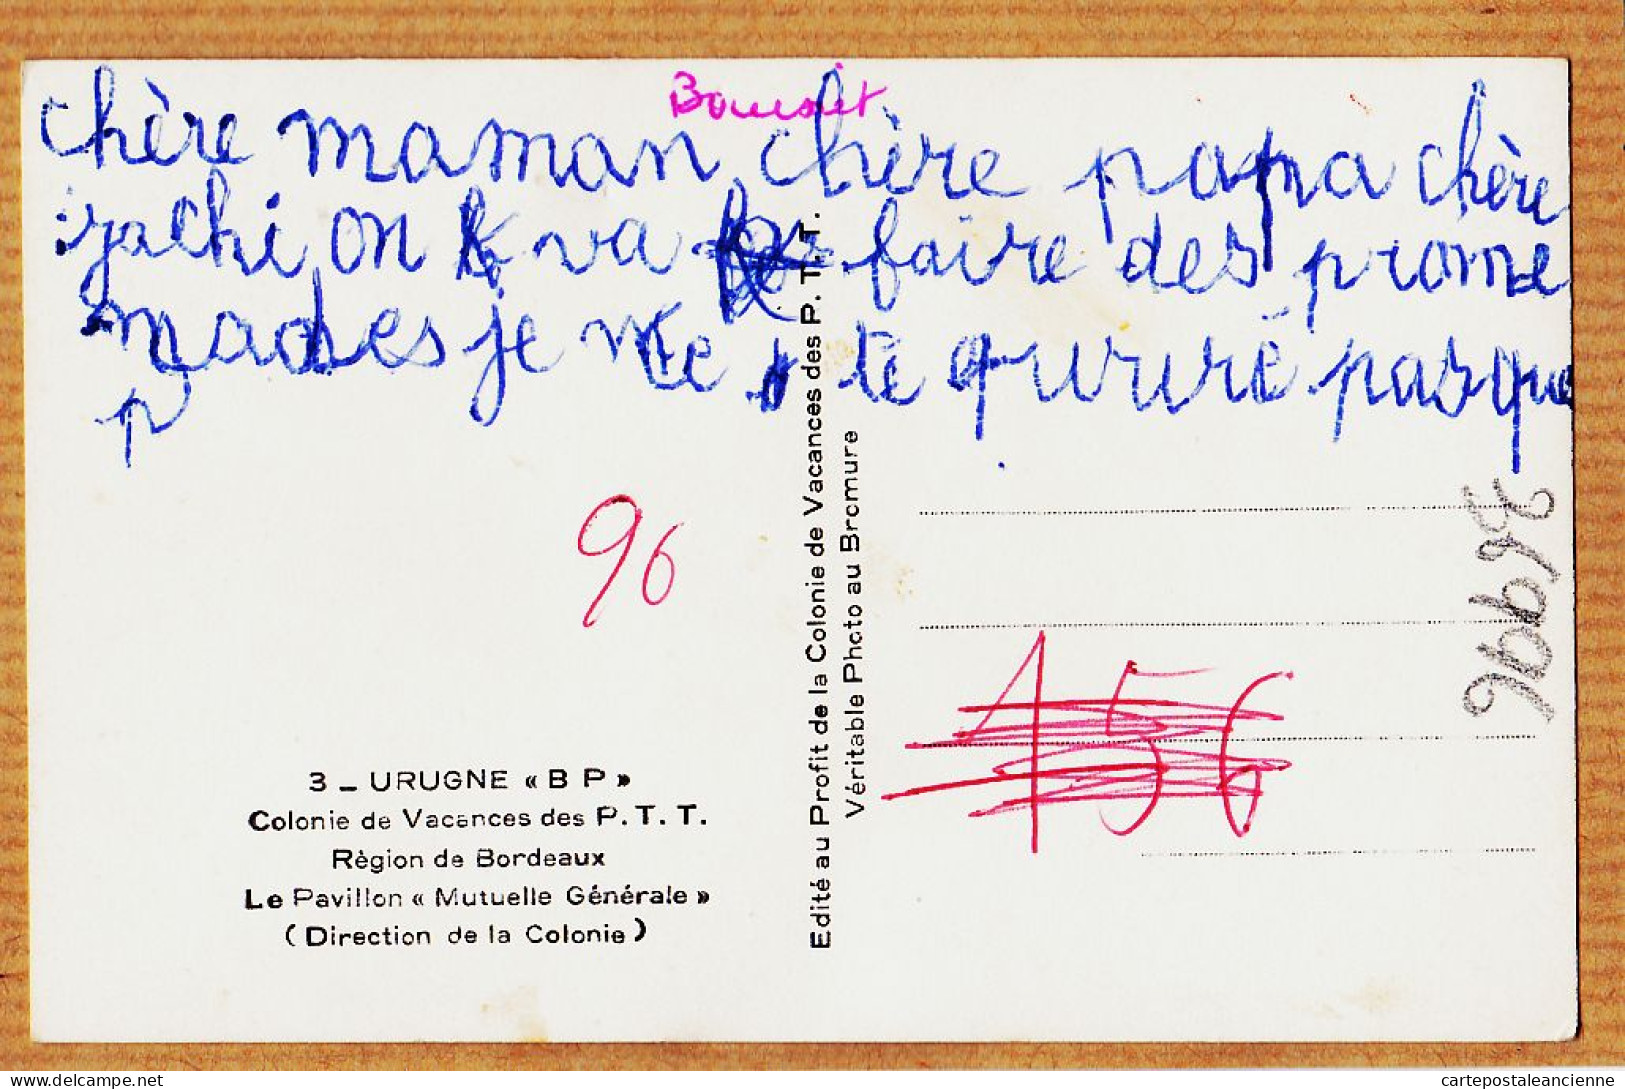 Bousit
chère maman chère papa chère
jachi on va faire des prome
nades je te qururé pas que
p
96
156
3 _ URUGNE « B P »
Colonie de Vacances des P. T. T.
Règion de Bordeaux
Le Pavillon « Mutuelle Générale »
( Direction de la Colonie )
Edité au Profit de la Colonie de Vacances des P. T. T.
Véritable Photo au Bromure
cartepostaleancienne